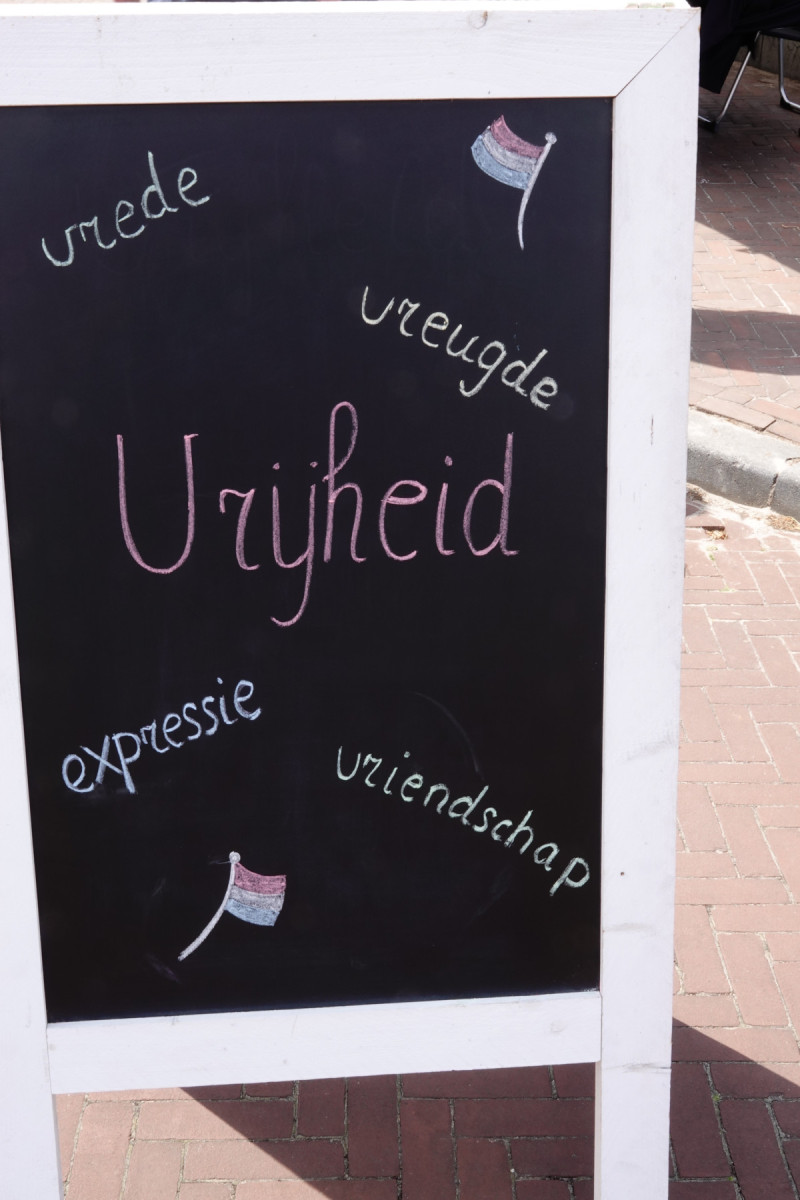 vrede
vreugde
Vrijheid
expressie
vriendschap